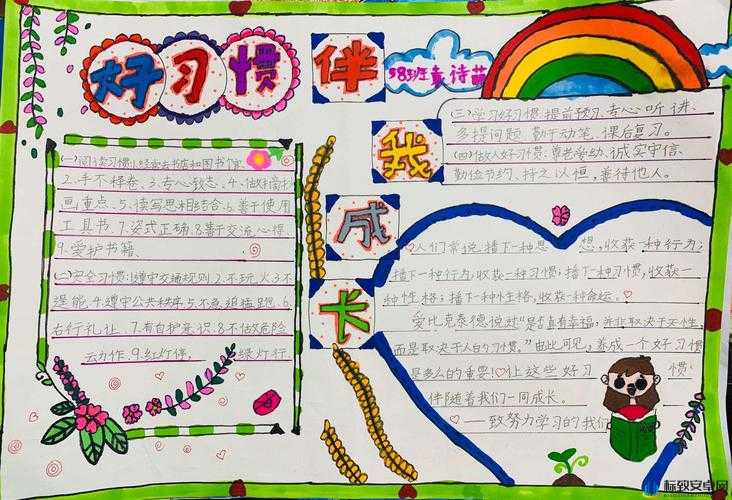 好习惯伴我成长
38班袁诗萌
(一)阅读习惯:1.经常去书店和图书馆.
2.手不释卷.3.专心致志.4.做摘抄
画重点.5.读写思相结合.6.善于使用
工具书.7.姿式正确.8.善于交流心得
9.爱护书籍.
(二)安全习惯:1.遵守交通规则.2.不玩火.3不
逞能.4.遵守公共秩序.5.不急追猛跑.6.
右行礼让.7.有自护意识.8.不做危险
云力作.9.红灯停, 绿灯行
(三)学习好习惯:提前预习、专心听讲、
多提问题、勤于动笔、课后复习。
(四)做人好习惯:尊老爱幼、诚实守信、
勤俭节约、持之以恒,善待他人。
人们常说,播下一种思想,收获一种行为;
播下一种行为,收获一种习惯;播下一种习惯,收获一
种性格;播下一种性格,收获一种命运。
爱比克泰德说过"是否真有幸福,并非取决于天性,
而是取决于人的习惯。"由此可见,养成一个好习惯
是多么的重要!让这些好习惯
伴随着我们一同成长。
——致努力学习的我们
标致安卓网